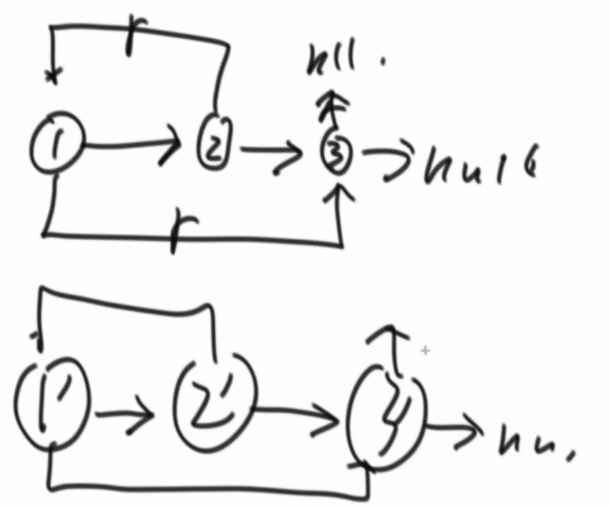 r
null.
1 2 3 null
r
1' 2' 3' nu.